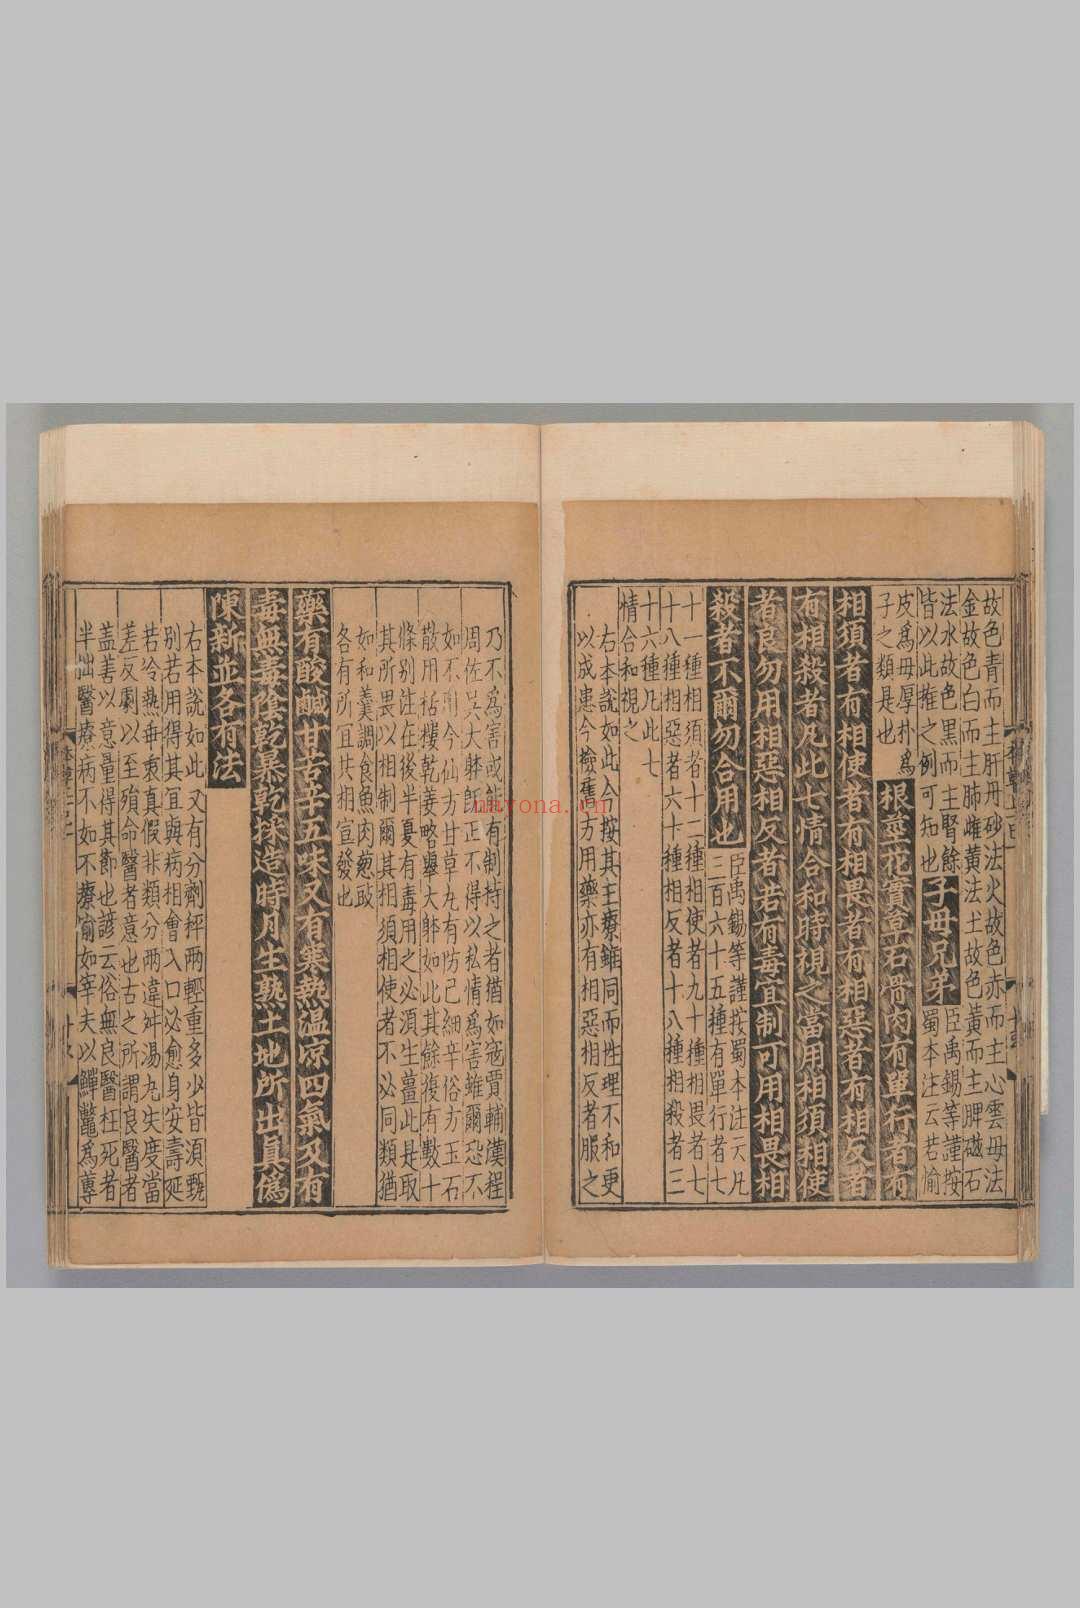 故色青而主肝丹砂法火故色赤而主心雲母法
金故色白而主肺雌黄法土故色黄而主脾磁石
法水故色黑而主腎餘
皆以此推之例可知也
子母兄弟
臣禹錫等謹按
蜀本注云若榆
皮爲母厚朴爲
子之類是也
根莖花實草石骨肉有單行者有
相須者有相使者有相畏者有相惡者有相反者
有相殺者凡此七情合和時視之當用相須相使
者良勿用相惡相反者若有毒宜制可用相畏相
殺者不爾勿合用也
臣禹錫等謹按蜀本注云凡
三百六十五種有單行者七
十一種相須者十二種相使者九十種相畏者七
十八種相惡者六十種相反者十八種相殺者三
十六種凡此七
情合和視之
右本說如此今按其主療雖同而性理不和更
以成患今檢舊方用藥亦有相惡相反者服之
乃不爲害或能有制持之者猶如寇賈輔漢程
周佐吳大躰既正不得以私情爲害雖爾恐不
如不用今仙方甘草丸有防己細辛俗方玉石
散用栝樓乾姜略舉大躰如此其餘復有數十
條別注在後半夏有毒用之必須生薑此是取
其所畏以相制爾其相須相使者不必同類猶
如和羹調食魚肉葱豉
各有所宜共相宣發也
藥有酸鹹甘苦辛五味又有寒熱温凉四氣及有
毒無毒陰乾暴乾採造時月生熟土地所出真僞
陳新並各有法
右本說如此又有分劑秤兩輕重多少皆須甄
別若用得其宜與病相會入口必愈身安壽延
若冷熱乖衷真假非類分兩違舛湯丸失度當
差反劇以至殞命醫者意也古之所謂良醫者
盖善以意量得其節也諺云俗無良醫枉死者
半拙醫療病不如不療喻如宰夫以鱓鼈爲蓴
nayona.cn